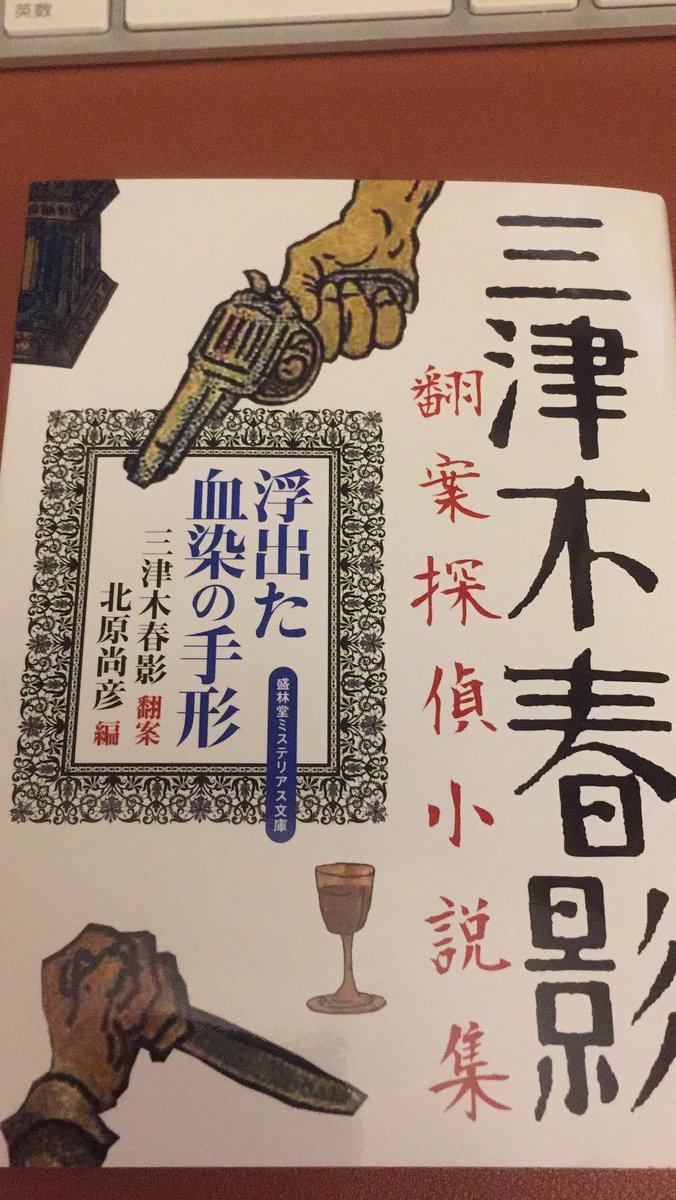 英数
三津木春影
翻案探偵小説集
浮出た
血染の手形
三津木春影 翻案
北原尚彦 編
盛林堂ミステリアス文庫